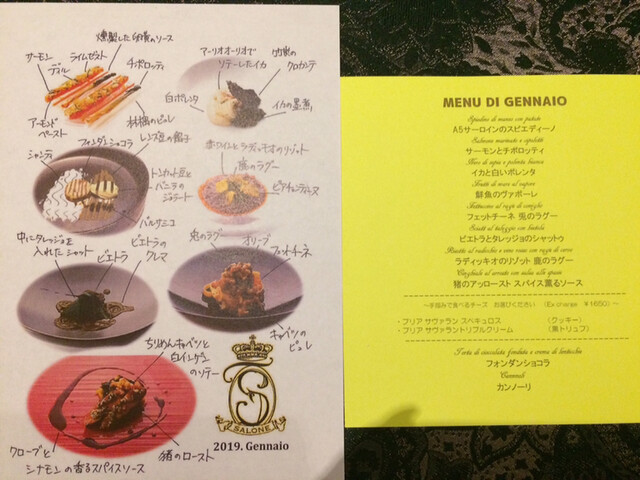 燻製した卵黄のソース
サーモン
ライムゼスト
ディル
チポロッティ
アーモンド
ペースト
林檎のピュレ
アーリオオーリオで
ソテーしたイカ
竹炭の
クロカンテ
白ポレンタ
イカの墨煮
フォンダンショコラ
レンズ豆の餡子
シャンティ
トンカット豆と
バニラの
ジェラート
バルサミコ
赤ワインとラディッキオのリゾット
鹿のラグー
ピアチェンティーヌ
中にタレッジョを
入れた シャット
ビエトラ
ビエトラの
クレマ
兎のラグー
オリーブ
フェットチーネ
キャベツの
ピュレ
ちりめんキャベツと
白インゲン
のソテー
クローブと
シナモンの香るスパイスソース
猪のロースト
SALONE
2019. Gennaio
MENU DI GENNAIO
Spiedino di manzo con patate
A5サーロインのスピエディーノ
Salmone marinato e cipolotti
サーモンとチポロッティ
Nero di sepia e polenta bianca
イカと白いポレンタ
Frutti di mare al vapore
鮮魚のヴァポーレ
Fettuccine al ragù di coniglio
フェットチーネ 兎のラグー
Sciatt al taleggio con bietola
ビエトラとタレッジョのシャットゥ
Risotto al radicchio e vino rosso con ragù di cervo
ラディッキオのリゾット 鹿のラグー
Cinghiale al arrosto con salsa alle spezie
猪のアッロースト スパイス薫るソース
～手掴みで食べるチーズ お選びください (Ex charge ¥1650) ～
・ブリア サヴァラン スペキュロス (クッキー)
・ブリア サヴァラントリフルクリーム (黒トリュフ)
Torta di cioccolata fonduta e crema di lenticchie
フォンダンショコラ
Cannoli
カンノーリ